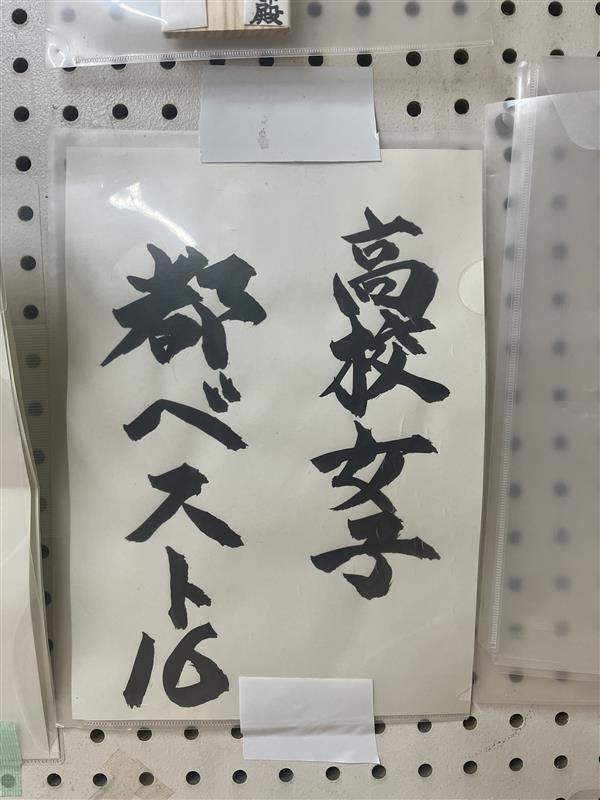 殿
高校女子
都ベスト16